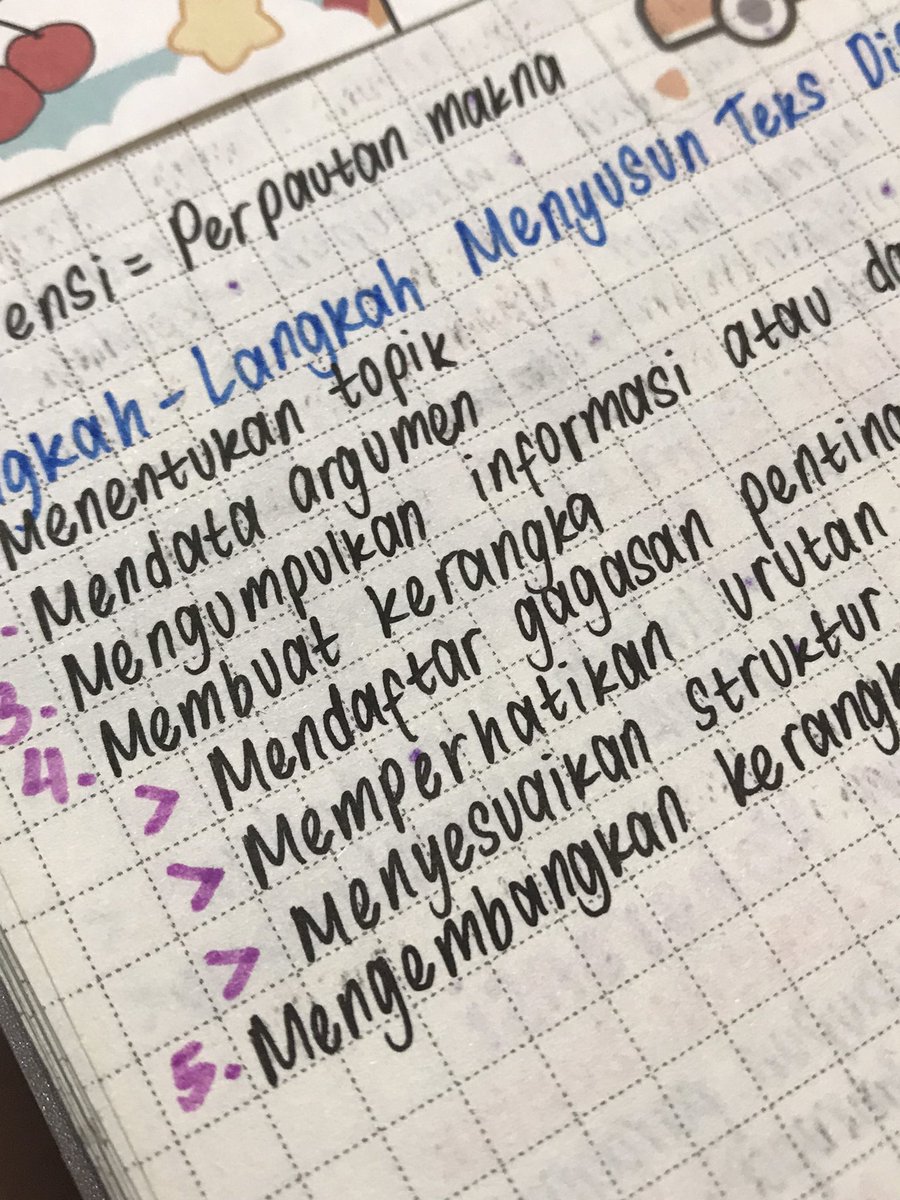 ensi = Perpautan makna
gkah - Langkah Menyusun Teks Dis
Menentukan topik
- Mendata argumen
3. Mengumpulkan informasi atau da
4. Membuat kerangka
> Mendaftar gagasan penting
> Memperhatikan urutan
> Menyesuaikan struktur
5. Mengembangkan kerangk